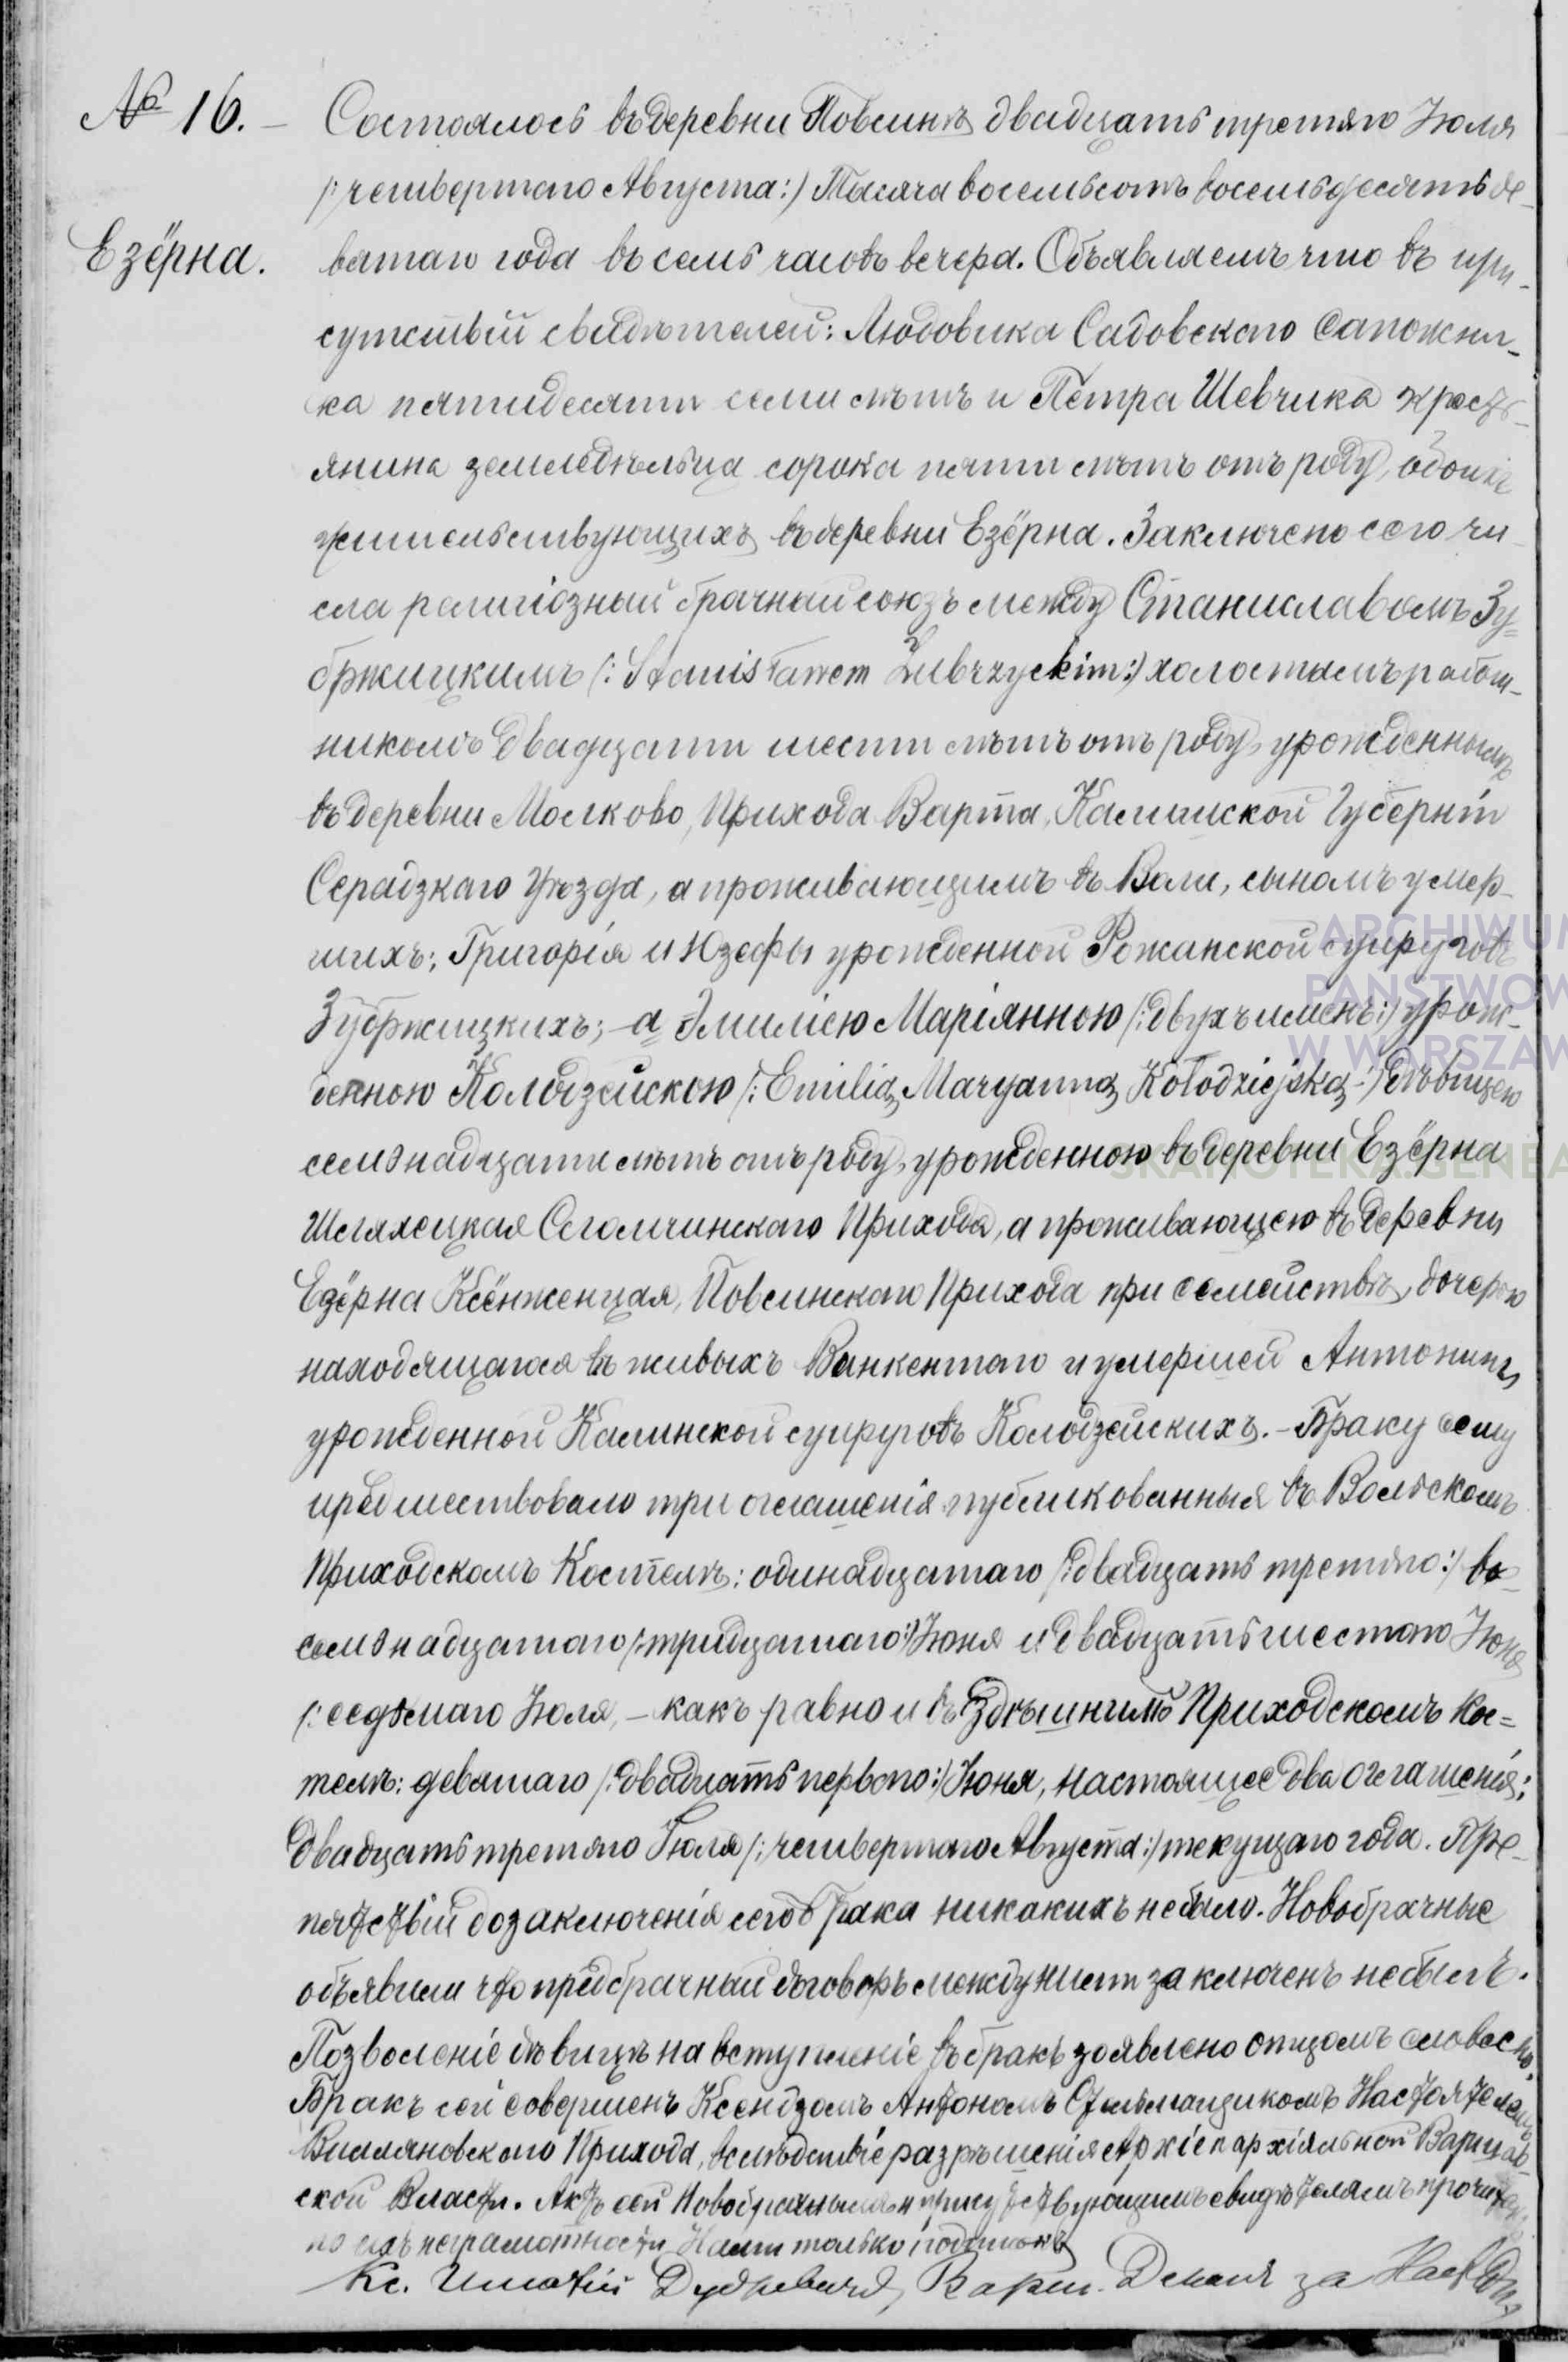 № 16. – Состоялось въ деревни Повсинѣ двадцать третяго Іюля
/:четвертаго Августа:/ Тысяча восемьсотъ восемьдесятъ де-
Езёрна. вятаго года въ семь часовъ вечера. Объявляемъ что въ при-
сутствіи свидѣтелей: Людовика Садовскаго сапожни-
ка пятидесяти семи лѣтъ и Петра Шевчика крестъ-
янина земледѣльца сорока пяти лѣтъ отъ роду, обоихъ
жительствующихъ въ деревни Езёрна. Заключено сего чи-
сла религіозный брачный союзъ между Станиславомъ Зу-
бржицкимъ /:Stanisławem Zubrzyckim:/ холостымъ работ-
никомъ двадцати шести лѣтъ отъ роду, урожденнымъ
въ деревни Молково, Прихода Варта, Калишской Губерніи
Серадзкаго Уѣзда, а проживающимъ въ Воли, сыномъ умер-
шихъ: Григорія и Юзефы урожденной Рожанской супруговъ
Зубржицкихъ; а Эмиліею Маріянною /:двухъ именъ:/ урож-
денною Колодзейскою /:Emilią Maryanną Kołodziejską:/ дѣвицею
семьнадцати лѣтъ отъ роду, урожденною въ деревни Езёрна
Шляхецкая Сломчинскаго Прихода, а проживающею въ деревни
Едёрна Ксёнженцая, Повсинскаго Прихода при семействѣ, дочерью
находящагося въ живыхъ Винкентаго и умершей Антонины
урожденной Калинской супруговъ Колодзейскихъ. – Браку сему
предшествовало три оглашенія публикованныя въ Вольскомъ
Приходскомъ Костелѣ: одинадцатаго /:двадцать третяго:/ во-
семьнадцатаго /:тридцатаго:/ Іюня и двадцать шестаго Іюня
/:седьмаго Іюля, – какъ равно и въ здѣшнимъ Приходскомъ Кос=
телѣ: девятаго /:двадцать перваго:/ Іюня, настоящее два оглашенія:
двадцать третяго Іюля /:четвертаго Августа:/ текущаго года. Пре-
пятствій до заключенія сего брака никакихъ небыло. Новобрачные
объявили что предбрачный договоръ между ними заключенъ небылъ.
Позволеніе дѣвицѣ на вступленіе въ бракъ заявлено отцомъ словесно.
Бракъ сей совершенъ Ксендзомъ Антономъ Настоятелемъ
Вилляновскаго Прихода, вслѣдствіе разрѣшенія Архіепархіяльной Варшав-
ской Власти. Актъ сей Новобрачнымъ и присутствующимъ свидѣтелямъ прочитанъ
по ихъ неграмотности Нами только подписанъ
Кс. Игнатій Дудревичъ, Варш. Деканъ за